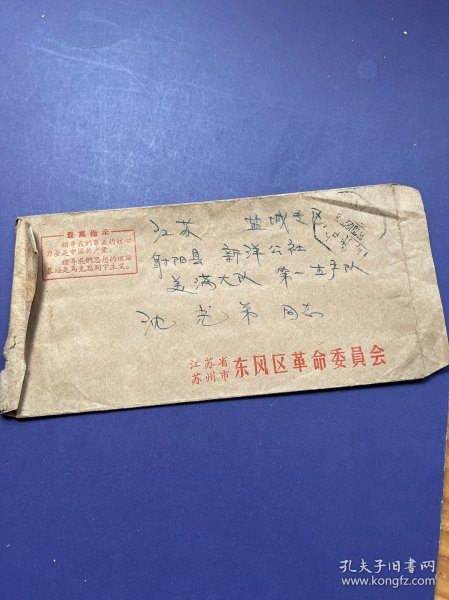 最高指示
领导我们事业的核心
力量是中国共产党。
指导我们思想的理论
基础是马克思列宁主义。
江苏 盐城专区
射阳县 新洋公社
美满大队 第一生产队
沈光弟 同志
江苏省
苏州市 东风区革命委員会
孔夫子旧书网
www.kongfz.com